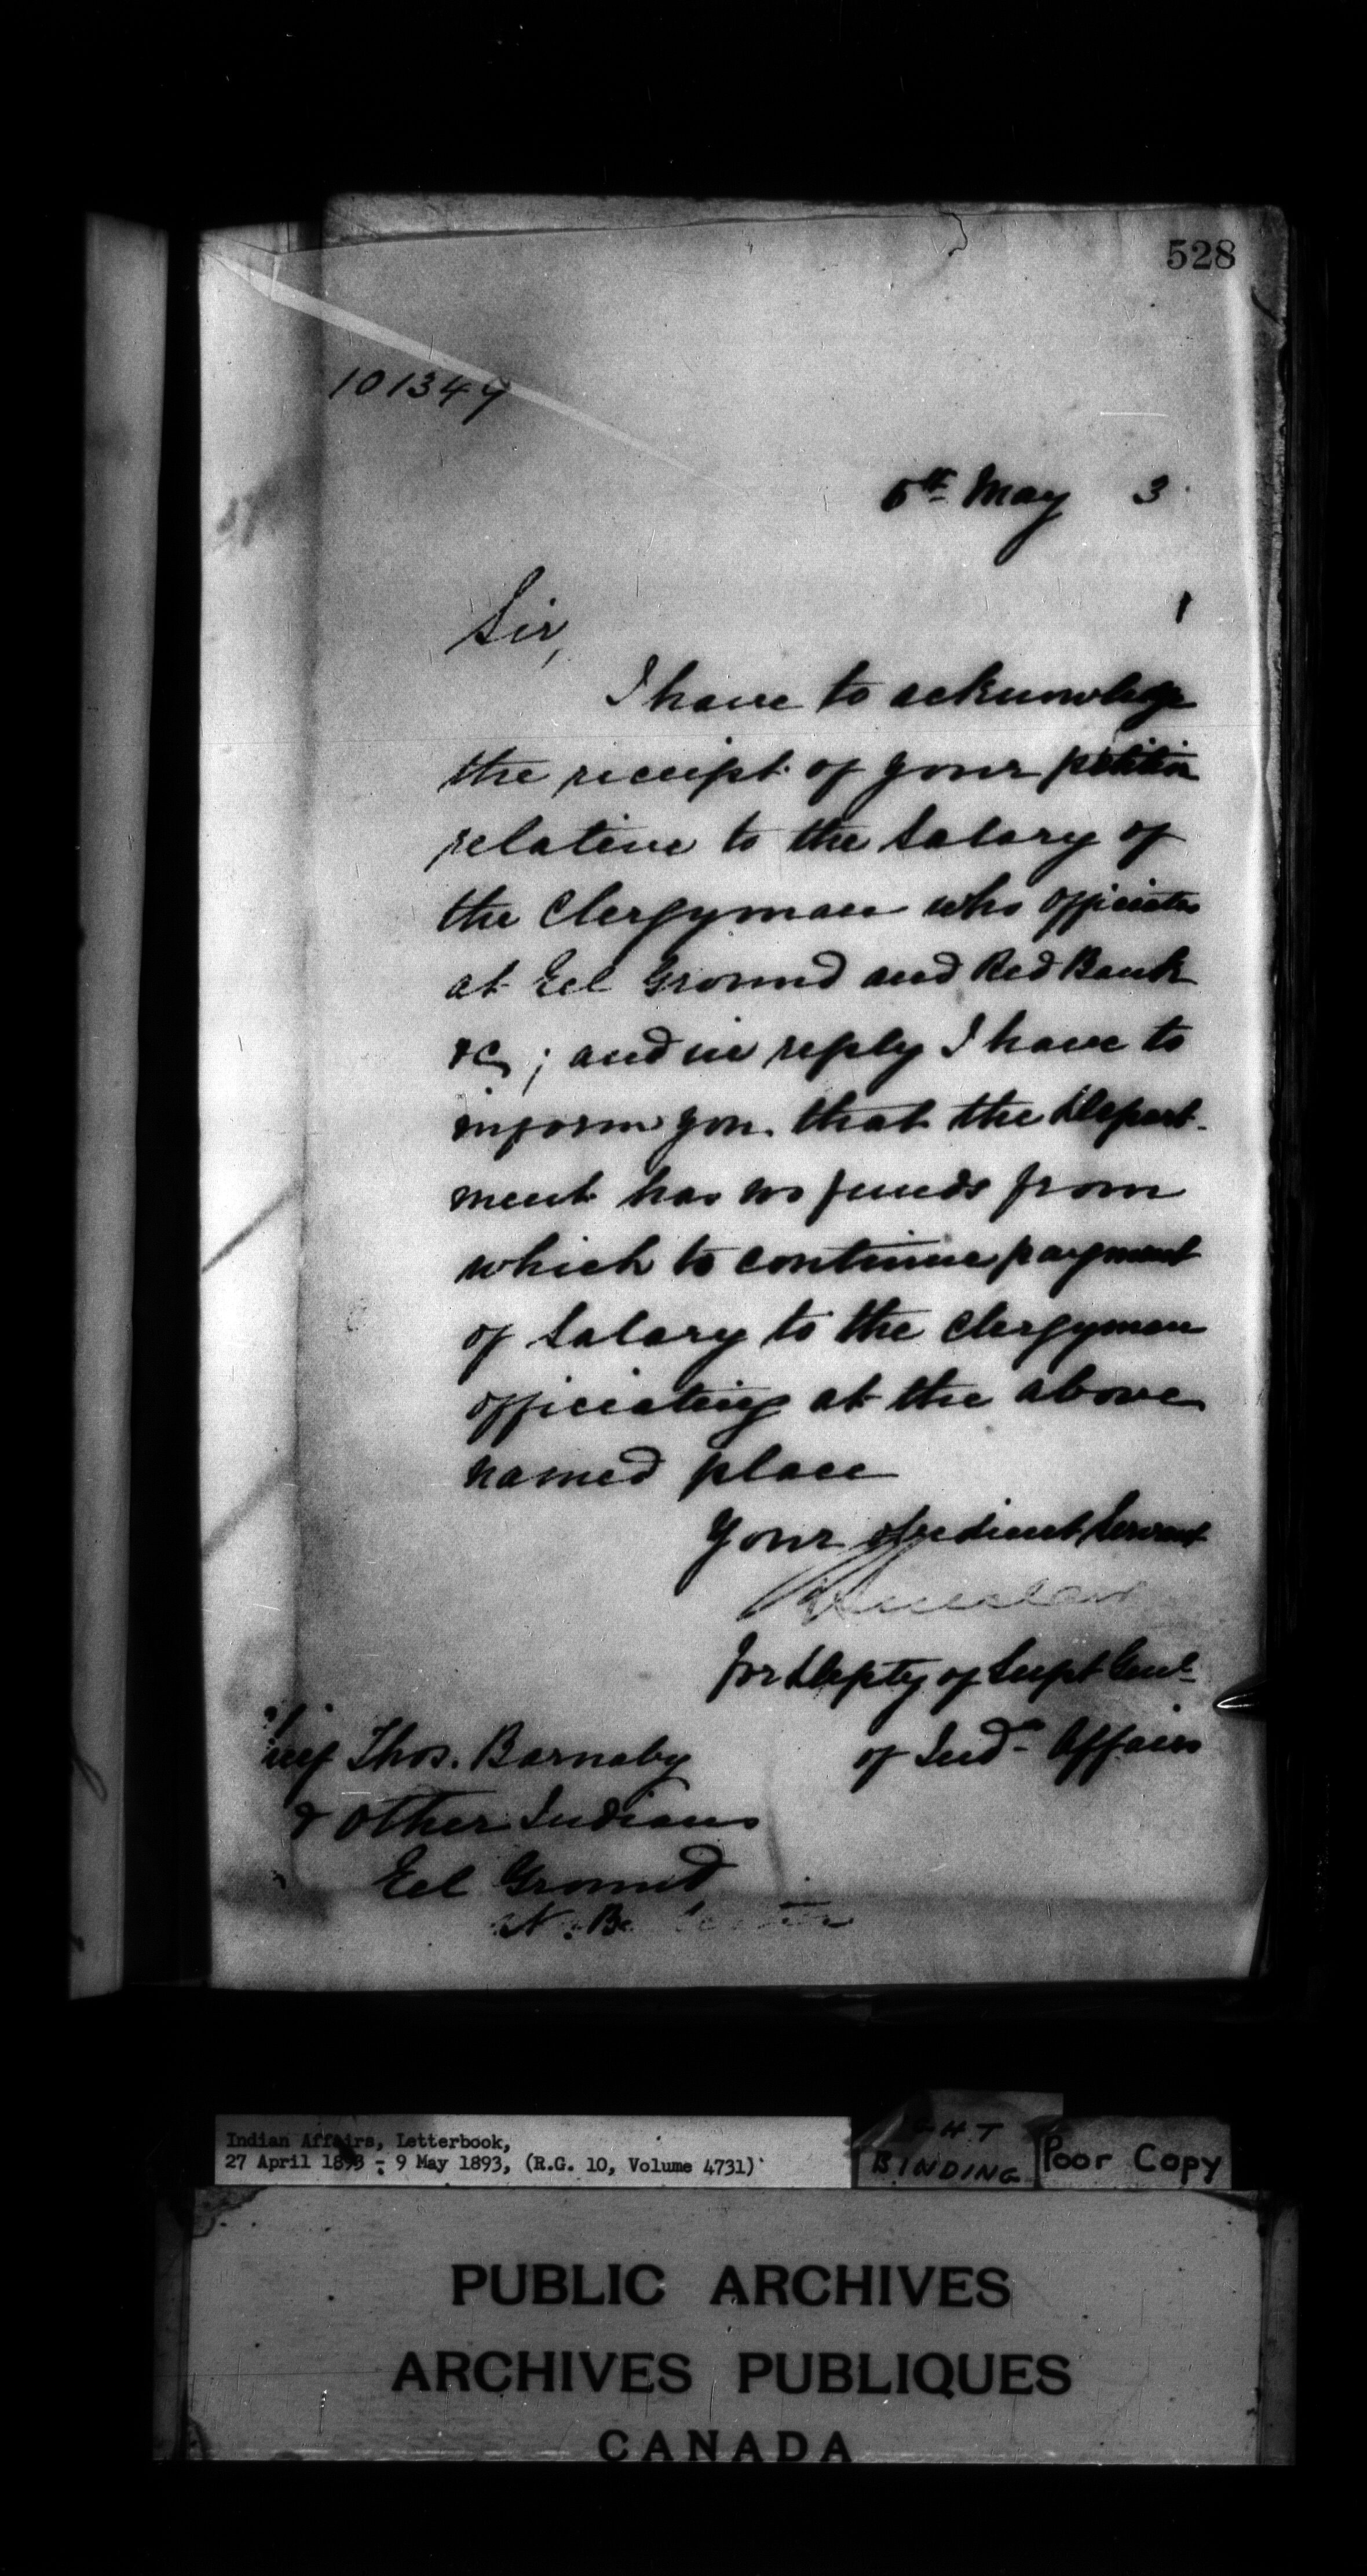 528
101349
5th May 3
Sir,
I have to acknowledge
the receipt of your petition
relative to the Salary of
the Clergyman who officiates
at Eel Ground and Red Bank
&c; and in reply I have to
inform you that the Depart-
ment has no funds from
which to continue payment
of Salary to the Clergyman
officiating at the above
named place
Your obedient Servant
for Depty of Supt Genl
of Ind- Affairs
Thos. Barnaby
& other Indians
Eel Ground
N. B.
Indian Affairs, Letterbook,
27 April 1893 - 9 May 1893, (R.G. 10, Volume 4731)
BINDING
Poor Copy
PUBLIC ARCHIVES
ARCHIVES PUBLIQUES
CANADA